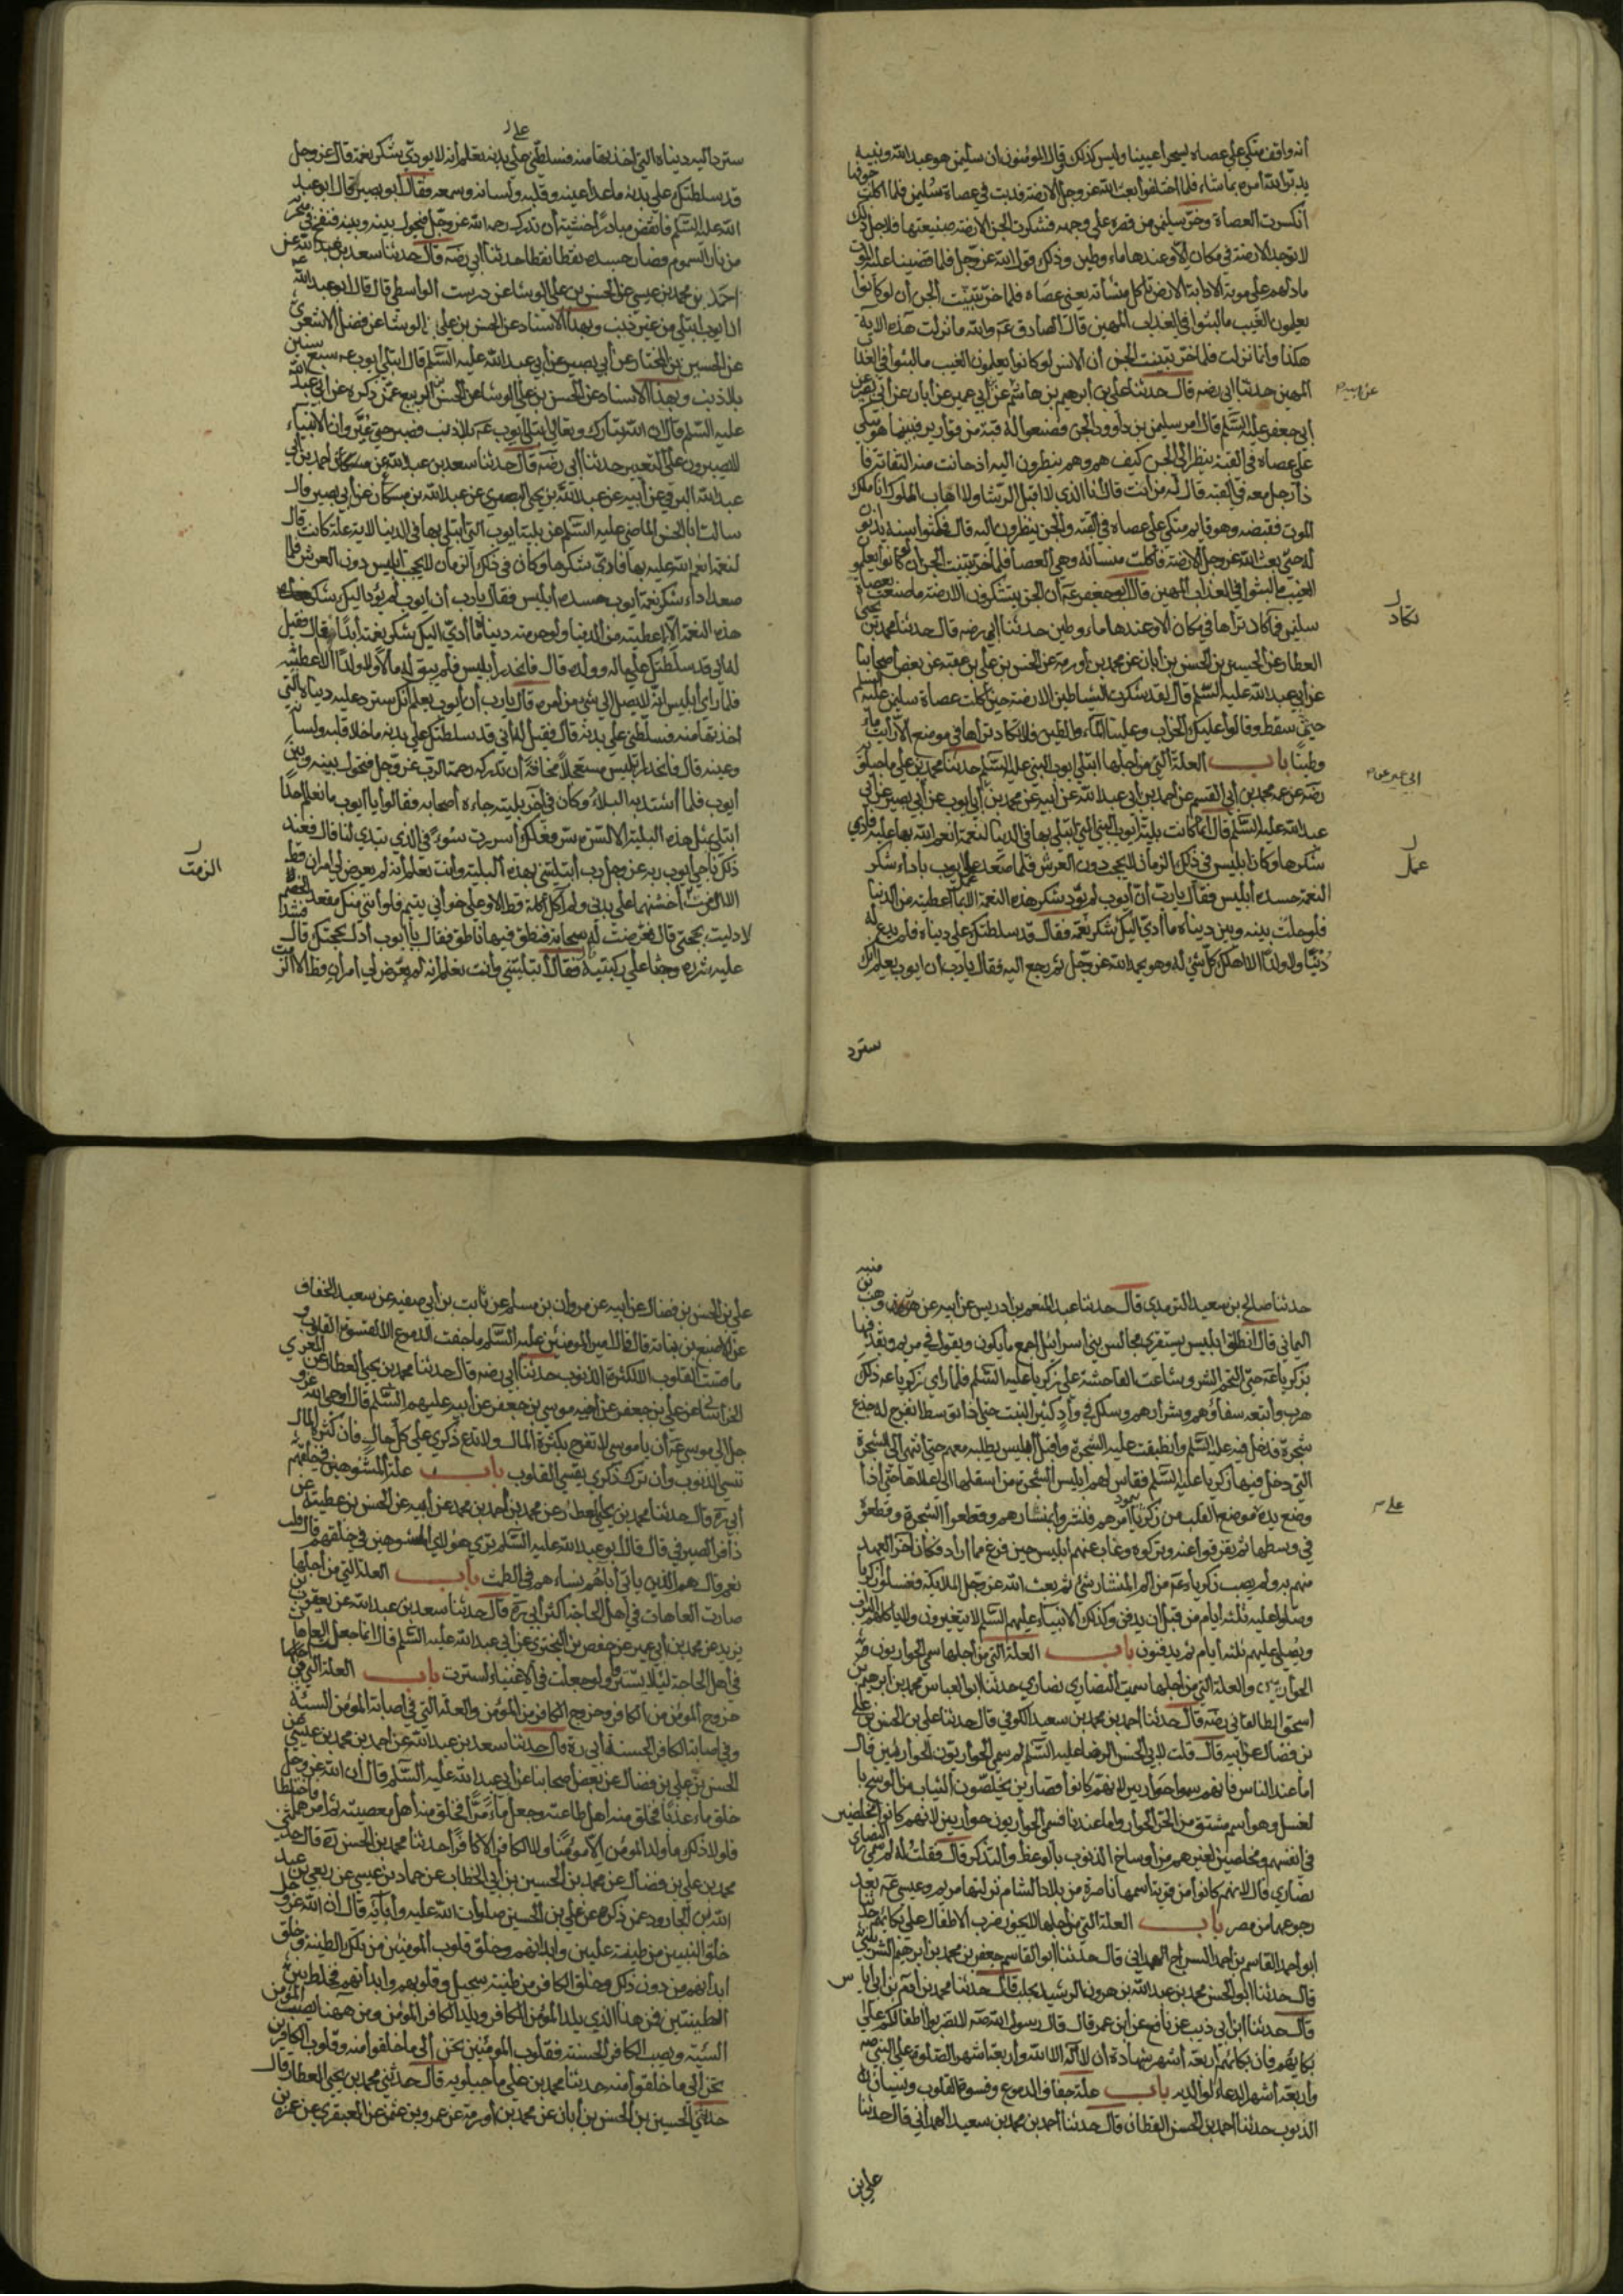 أنه واقف متكئ على عصاه يسحر أعيننا وليس كذلك فقال المؤمنون ان سليمن هو عبد الله ونبيه
يدبر الله أمره بما شاء فلما اختلفوا بعث الله عز وجل الارضة فدبت في عصاة سليمن فلما اكلت جوفها
انكسرت العصاة وخر سليمن من قصره على وجهه فشكرت الجن الارضة صنيعتها فلاجل ذلك
لا توجد الارضة في مكان الا وعندها ماء وطين وذلك قول الله عز وجل فلما قضينا عليه الموت
ما دلهم على موته الا دابة الارض تأكل منسأته يعنى عصاه فلما خر تبينت الجن أن لو كانوا
يعلمون الغيب ما لبثوا في العذاب المهين قال الصادق عه والله ما نزلت هذه الاية
هكذا وانما نزلت فلما خر تبينت الجن أن الانس لو كانوا يعلمون الغيب ما لبثوا في العذاب
المهين حدثنا ابى رضه قال حدثنا على بن أبرهيم بن هاشم عن أبي عمير عن أبان عن أبي بصير عن
أبي جعفر عليه السلم قال امر سليمن بن داوود الجن فصنعوا له قبة من قوارير فبينما هو متكي
على عصاه في القبة ينظر الى الجن كيف هم وهم ينظرون اليه اذ حانت منه التفاتة فا
ذا رجل معه في القبة قال له من أنت قال أنا الذي لا اقبل الرشا ولا اهاب الملوك انا ملك
الموت فقبضه وهو قايم متكى على عصاه في القبة والجن ينظرون اليه قال فمكثوا سنة يدابون
له حتى بعث الله عز وجل الارضة فأكلت منسأته وهي العصا فلما خر تبينت الجن ان لو كانوا يعلمو
الغيب ما لبثوا في العذاب المهين قال ابو جعفر عه أن الجن يشكرون الارضة ما صنعت بعصاة
سليمن فما كاد تراها في مكان الا وعندها ماء وطين حدثنا أبي رضه قال حدثنا محمد بن يحيى
العطار عن الحسين بن الحسن بن أبان عن محمد بن أورمة عن الحسن بن علي بن عقبة عن بعض أصحابنا
عن أبي عبد الله عليه السلم قال لقد شكرت الشياطين الارضة حين أكلت عصاة سليمن عليه السلم
حيث سقط وقالوا عليك الخراب وعلينا الماء والطين فلا تكاد تراها في موضع الا رأيت ماء
وطينا باب العلة التي من أجلها ابتلي ايوب النبي عليه السلم حدثنا محمد بن علي ماجيلويه
رضه عن عمه محمد بن أبي القسم عن أحمد بن أبي عبد الله عن أبيه عن محمد بن أبي ايوب عن أبي بصير عن أبي
عبد الله عليه السلم قال انما كانت بلية أيوب النبي التي ابتلي بها في الدنيا لنعمة انعم الله بها عليه فادي
شكرها وكان ابليس في ذلك الزمان لا يحجب دون العرش فلما صعد عمل ايوب باداء شكر
النعمة حسده ابليس فقال يا رب أن أيوب لم يؤد شكر هذه النعمة الا بما أعطيته من الدنيا
فلو حلت بينه وبين دنياه ما أدي اليك شكر نعمة فقال قد سلطتك على دنياه فلم يدع له
دنيا ولا ولدا الا اهلك كل شئ له وهو يحمد الله عز وجل ثم رجع اليه فقال يا رب ان ايوب يعلم انك
سترد
تكاد
ابى عمير عن
عمل
على
سترد اليه دنياه التي أخذتها منه فسلطنى على بدنه تعلم أنه لا يودي شكر نعمة قال عز وجل
قد سلطتك على بدنه ما عدا عينه وقلبه ولسانه وسمعه فقال أبو بصير قال ابو عبد
الله عليه السلم فانقض مبادرا خشية أن تدركه رحمة الله عز وجل فيحول بينه وبينه فنفخ في منخريه
من نار السموم فصار جسده نقطا نقطا حدثنا أبي رضه قال حدثنا سعد بن عبد الله عن
احمد بن محمد بن عيسى عن الحسن بن على الوشا عن درست الواسطي قال قال ابو عبد الله عه
ان ايوب ابتلي من غير ذنب وبهذا الاسناد عن الحسن بن علي الوشا عن فضل الاشعري
عن الحسين بن المختار عن أبي بصير عن أبي عبد الله عليه السلم قال ابتلي أيوب عه سبع سنين
بلا ذنب وبهذا الاسناد عن الحسن بن علي الوشا عن الحسن بن الربيع عمن ذكره عن أبي عبد الله
عليه السلم قال ان الله تبارك وتعالى ابتلى ايوب عه بلا ذنب فصبر حتى عير وان الانبياء
لا يصبرون على التعيير حدثنا أبى رضه قال حدثنا سعد بن عبد الله عن أحمد بن أبي
عبد الله البرقي عن أبيه عن عبد الله بن يحيى البصري عن عبد الله بن مسكان عن أبي بصير قال
سالت ابا الحسن الماضي عليه السلم عن بلية أيوب التي أبتلي بها في الدنيا لاية علة كانت قال
لنعمة انعم الله عليه بها فأدي شكرها وكان في ذلك الزمان لا يحجب ابليس دون العرش فلما
صعد اداء شكر نعمة أيوب حسده أبليس فقال يا رب أن ايوب لم يؤد اليك شكر
هذه النعمة الا بما اعطيته من الدنيا ولو حرمته دنياه ما أدى اليك شكر نعمة أبدا قال فقيل
له اني قد سلطتك على ماله وولده قال فانحدر أبليس فلم يبق له مالا ولا ولدا الا اعطبه
فلما راى أبليس انه لا يصل الى شئ من أمره قال يا رب أن أيوب يعلم انك سترد عليه دنياه التي
أخذتها منه فسلطني على بدنه قال فقيل له اني قد سلطتك على بدنه ما خلا قلبه ولسانه
وعينه قال فانحدر ابليس مستعجلا مخافة أن تدركه رحمة الرب عز وجل فتحول بينه وبين
أيوب فلما أشتد به البلاء وكان في اخر بليته جاءه أصحابه فقالوا يا أيوب ما نعلم احدا
ابتلي بمثل هذه البلية الا لسريرة سر فعلك أسررت سوءا في الذي تبدي لنا قال فعند
ذلك ناجى ايوب ربه عز وجل رب أبتليتنى بهذه البلية وأنت تعلم أنه لم يعرض لي امران قط
الا لزمت أخشنهما على بدني ولم آكل أكلة قط الا وعلى خواني يتيم فلو أن لي منك مقعد الخصم
لادليت بحجتي قال فعرضت له سحابة فنطق فيها ناطق فقال يا أيوب أدل بحجتك قال فشد
عليه مئزره وجثا على ركبتيه فقال أبتليتني وأنت تعلم انه لم يعرض لي أمران قط الا الزمت
الزمت
حدثنا صالح بن سعيد الترمذي قال حدثنا عبد المنعم بن ادريس عن ابيه عن وهب بن منبه
اليماني قال انطلق ابليس يستقري مجالس بني أسرائيل اجمع ما يكون ويقول في مريم ويقذفها
بزكريا عه حتى التحم الشر وشاعت الفاحشة على زكريا عليه السلم فلما راى زكريا عه ذلك
هرب وأتبعه سفاؤهم وشرارهم وسلك في وأد كثير النبت حتى اذا توسطا انفرج له جذع
شجرة فدخل فيه عليه السلم وانطبقت عليه الشجرة واقبل أبليس يطلبه معهم حتى أنتهى الى الشجرة
التي دخل فيها زكريا عليه السلم فقاس لهم أبليس الشجرة من أسفلها الى اعلاها حتى أذا
وضع يده موضع القلب من زكريا أمرهم فنشروا بمنشارهم وقطعوا الشجرة وقطعوه
في وسطها ثم تفرقوا عنه وتركوه وغاب عنهم ابليس حين فرغ مما أراد فكان آخر العهد
منهم به ولم يصب زكريا عه من الم المنشار شئ ثم بعث الله عز وجل الملائكة فغسلوا زكريا
وصلوا عليه ثلثة ايام من قبل ان يدفن وكذلك الانبياء عليهم السلم لا يتغيرون ولا ياكلهم التراب
ويصلى عليهم ثلثة أيام ثم يدفنون باب العلة التي من أجلها سمي الحواريون
الحواريين والعلة التي من أجلها سميت النصارى نصارى حدثنا ابو العباس محمد بن ابرهيم بن
أسحق الطالقاني رضه قال حدثنا أحمد بن محمد بن سعيد الكوفي قال حدثنا علي بن الحسن بن علي
بن فضال عن أبيه قال قلت لابي الحسن الرضا عليه السلم لم سمي الحواريون الحواريين قال
اما عند الناس فانهم سموا حواريين لانهم كانوا قصارين يخلصون الثياب من الوسخ با
لغسل وهو أسم مشتق من الخبز الحوار واما عندنا فسمي الحواريون حواريين لانهم كانوا مخلصين
في انفسهم ومخلصين لغيرهم من أوساخ الذنوب بالوعظ والتذكر قال فقلت له لم سمى النصارى
نصارى قال لانهم كانوا من قرية اسمها ناصرة من بلاد الشام نزلتها مريم وعيسى عه بعد
رجوعهما من مصر باب العلة التي من أجلها لا يجوز ضرب الاطفال على بكائهم حدثنا
ابو أحمد القاسم بن احمد السراج الهمداني قال حدثنا ابو القاسم جعفر بن محمد بن ابرهيم السرنديبي
قال حدثنا ابو الحسن محمد بن عبد الله بن هرون الرشيد بحلب قال حدثنا محمد بن آدم بن ابي اياس
قال حدثنا ابن ابى ذيب عن نافع عن ابن عمر قال قال رسول الله صه لا تضربوا اطفالكم على
بكائهم فان بكائهم أربعة أشهر شهادة أن لا اله الا الله وأربعة أشهر الصلوة على النبي صه
وأربعة أشهر الدعاء لوالديه باب علة جفاف الدموع وقسوة القلوب ونسيان
الذنوب حدثنا احمد بن الحسن القطان قال حدثنا أحمد بن محمد بن سعيد الهمداني قال حدثنا
علي بن
على
علي بن الحسن بن فضال عن ابيه عن مروان بن مسلم عن ثابت بن أبي صفيه عن سعيد الخفاف
عن الاصبغ بن نباتة قال قال امير المؤمنين عليه السلم ما جفت الدموع الا لقسوة القلوب و
ما قست القلوب الا لكثرة الذنوب حدثنا أبي رضه قال حدثنا محمد بن يحيى العطار عن العمري
الخراساني عن علي بن جعفر عن أخيه موسى بن جعفر عن أبيه عليهم السلم قال أوحى الله عز و
جل الى موسى عه أن يا موسى لا تفرح بكثرة المال ولا تدع ذكري على كل حال فان كثرة المال
تنسي الذنوب وأن ترك ذكري يقسي القلوب باب علة المشوهين في خلقهم
أبي ره قال حدثنا محمد بن يحيى العطار عن محمد بن أحمد بن محمد عن أبيه عن الحسن بن عطية عن
ذافر الصيرفي قال قال ابو عبد الله عليه السلم ترى هؤلاي المشوهين في خلقهم قال قلت
نعم قال هم الذين ياتى أباؤهم نساءهم في الطمث باب العلة التي من أجلها
صارت العاهات في أهل الحاجة اكثر أبي ره قال حدثنا سعد بن عبد الله عن يعقوب بن
يزيد عن محمد بن أبي عمير عن حفص بن البختري عن ابي عبد الله عليه السلم قال انما جعل العاهات
في أهل الحاجة لئلا يستتر ولو جعلت في الاغنياء لسترت باب العلة التي في
خروج المؤمن من الكافر وخروج الكافر من المؤمن والعلة التي في اصابة المؤمن السيئة
وفي اصابة الكافر الحسنة أبي ره قال حدثنا سعد بن عبد الله عن احمد بن محمد بن عيسى عن
الحسن بن علي بن فضال عن بعض أصحابنا عن أبي عبد الله عليه السلم قال أن الله عز وجل
خلق ماء عذبا فخلق منه أهل طاعته وجعل ماء مرا فخلق منه أهل معصيته ثم أمرهما فاختلطا
فلولا ذلك ما ولد المؤمن الا مؤمنا ولا الكافر الا كافرا حدثنا محمد بن الحسن ره قال حدثنى
محمد بن علي بن فضال عن محمد بن الحسين بن أبي الخطاب عن حماد بن عيسى عن ربعي بن عبد
الله بن الجارود عمن ذكره عن علي بن الحسين صلوات الله عليه وآبايه قال أن الله عز وجل
خلق النبيين من طينة عليين وابدانهم وخلق قلوب المؤمنين من تلك الطينة وخلق
أبدانهم من دون ذلك وخلق الكافر من طينة سجيل وقلوبهم وابدانهم فخلط بين
الطينتين فمن هذا الذي يلد المؤمن الكافر ويلد الكافر المؤمن ومن ههنا يصيب المؤمن
السيئة ويصيب الكافر الحسنة فقلوب المؤمنين تحن إلى ما خلقوا منه وقلوب الكافرين
تحن الى ما خلقوا منه حدثنا محمد بن علي ماجيلويه قال حدثني محمد بن يحيى العطار قال
حدثني الحسين بن الحسن بن أبان عن محمد بن أورمة عن عمرو بن عثمن عن المعبقري عن عمر بن